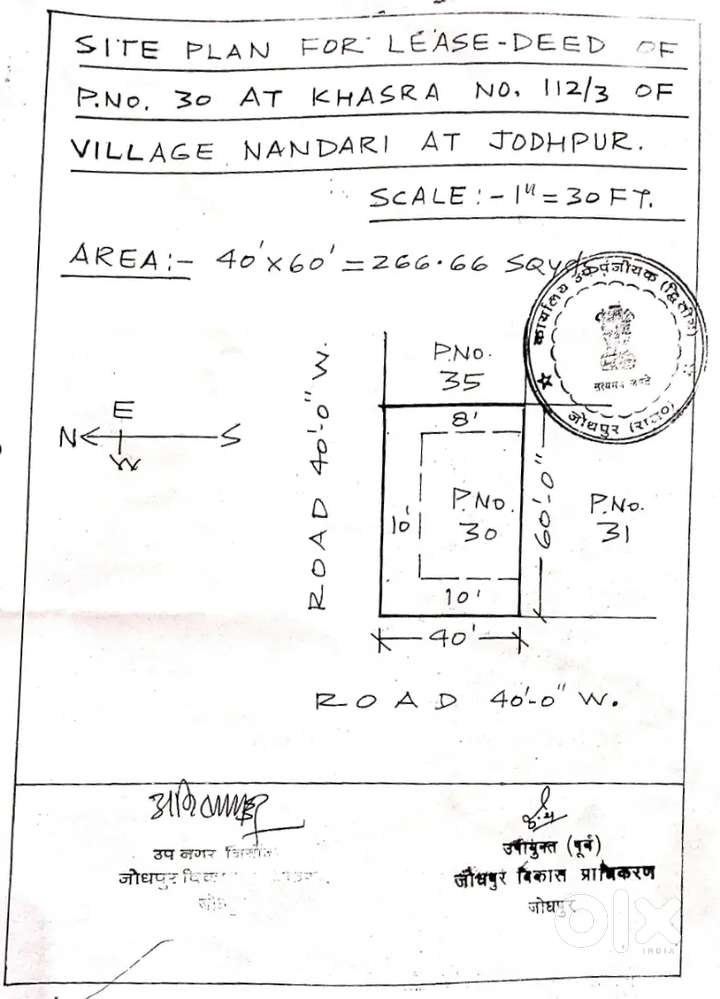 SITE PLAN FOR LEASE-DEED OF
P.NO. 30 AT KHASRA NO. 112/3 OF
VILLAGE NANDARI AT JODHPUR.
SCALE:- 1" = 30 FT.
AREA:- 40'x60' = 266.66 SQyds
कार्यालय उप पंजीयक (द्वितीय)
सत्यमेव जयते
जोधपुर (राज०)
P.NO.
35
ROAD 40'-0" W.
E
N S
W
8'
10'
P.NO.
30
60'-0"
P.NO.
31
10'
40'
ROAD 40'-0" W.
उप नगर
जोधपुर
उपायुक्त (पूर्व)
जोधपुर विकास प्राधिकरण
जोधपुर
olx
INDIA